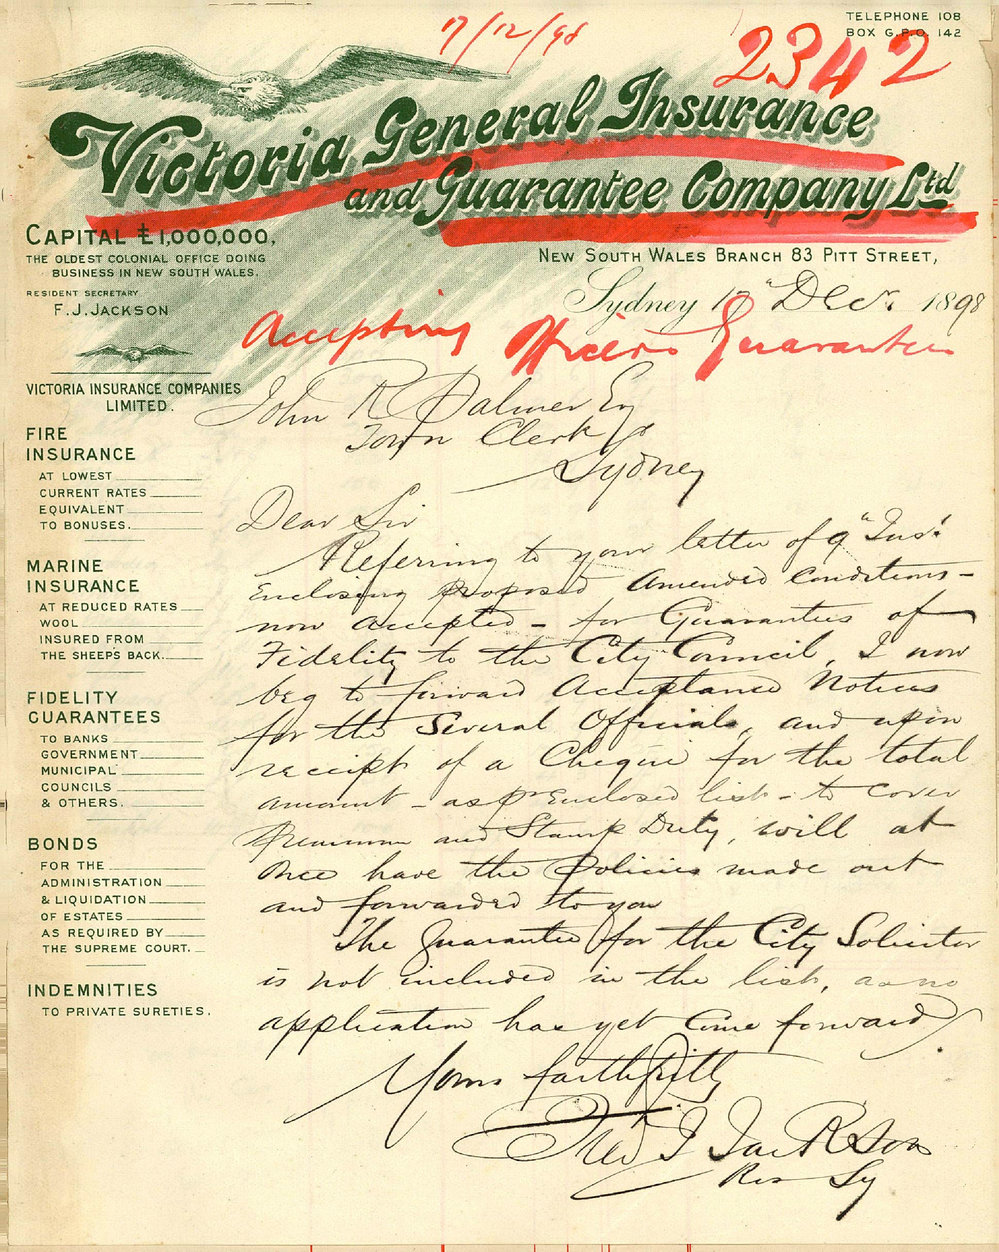 17/12/98
2342
TELEPHONE 108
BOX G.P.O. 142
Victoria General Insurance
and Guarantee Company Ltd
CAPITAL £1,000,000,
THE OLDEST COLONIAL OFFICE DOING
BUSINESS IN NEW SOUTH WALES.
RESIDENT SECRETARY
F. J. JACKSON
NEW SOUTH WALES BRANCH 83 PITT STREET,
Sydney 17th Decr. 1898
Accepting Officers Guarantees
VICTORIA INSURANCE COMPANIES
LIMITED.
FIRE
INSURANCE
AT LOWEST
CURRENT RATES
EQUIVALENT
TO BONUSES.
MARINE
INSURANCE
AT REDUCED RATES
WOOL
INSURED FROM
THE SHEEP'S BACK.
FIDELITY
GUARANTEES
TO BANKS
GOVERNMENT
MUNICIPAL
COUNCILS
& OTHERS.
BONDS
FOR THE
ADMINISTRATION
& LIQUIDATION
OF ESTATES
AS REQUIRED BY
THE SUPREME COURT.
INDEMNITIES
TO PRIVATE SURETIES.
John R Palmer Esq
Town Clerk
Sydney
Dear Sir
Referring to your letter of 9th Inst.
Enclosing proposed Amended Conditions -
now accepted - for Guarantees of
Fidelity to the City Council, I now
beg to forward Acceptance Notices
for the Several Officials, and upon
receipt of a Cheque for the total
amount - as pr Enclosed list - to cover
Premium and Stamp Duty, will at
Once have the Policies made out
and forwarded to you
The Guarantee for the City Solicitor
is not included in the list, as no
application has yet Come forward.
Yours faithfully
Fred J Jackson
Res Sy